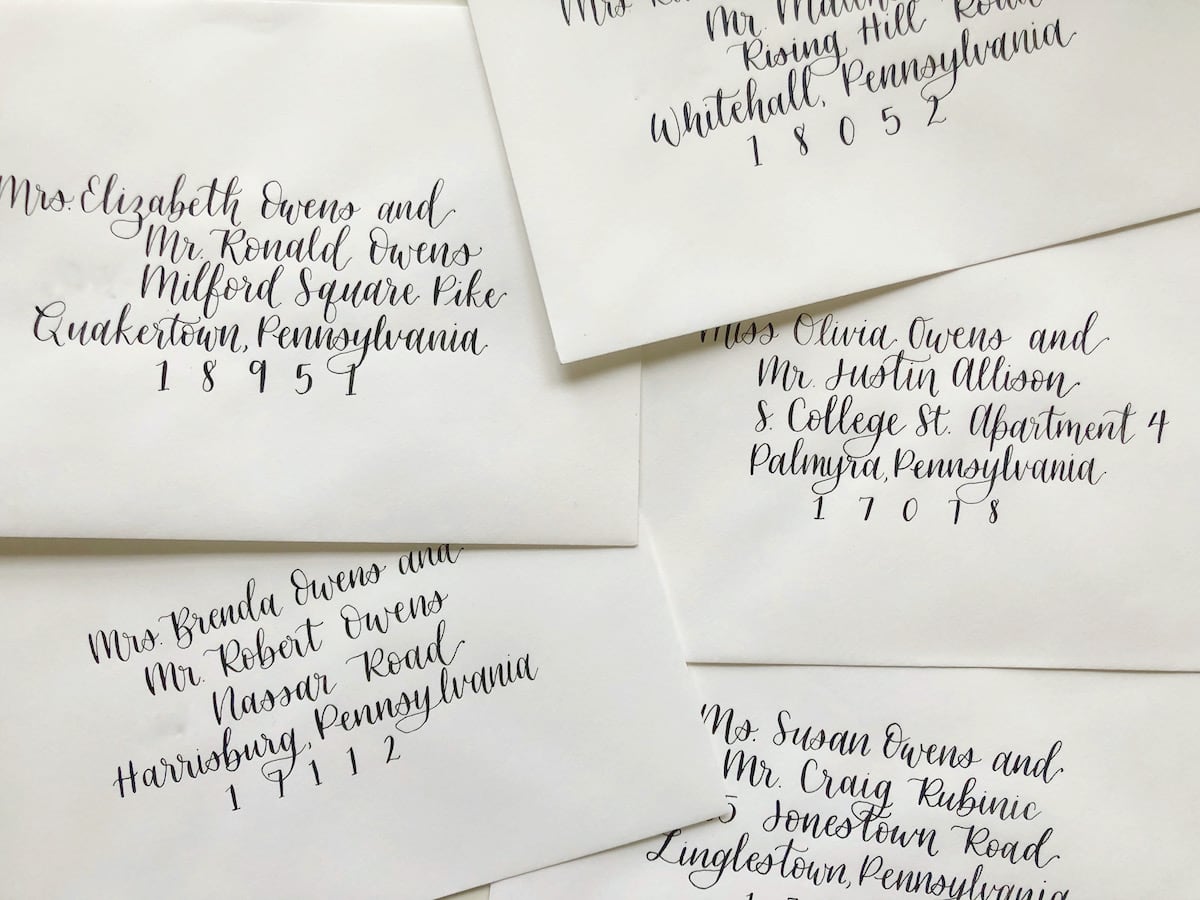 Mrs. Elizabeth Owens and
Mr. Ronald Owens
Milford Square Pike
Quakertown, Pennsylvania
1 8 9 5 1
Mrs
Mr.
Rising Hill Road
Whitehall, Pennsylvania
1 8 0 5 2
Miss Olivia Owens and
Mr. Justin Allison
S. College St. Apartment 4
Palmyra, Pennsylvania
1 7 0 7 8
Mrs. Brenda Owens and
Mr. Robert Owens
Nassar Road
Harrisburg, Pennsylvania
1 7 1 1 2
Ms. Susan Owens and
Mr. Craig Rubinic
5 Jonestown Road
Linglestown, Pennsylvania